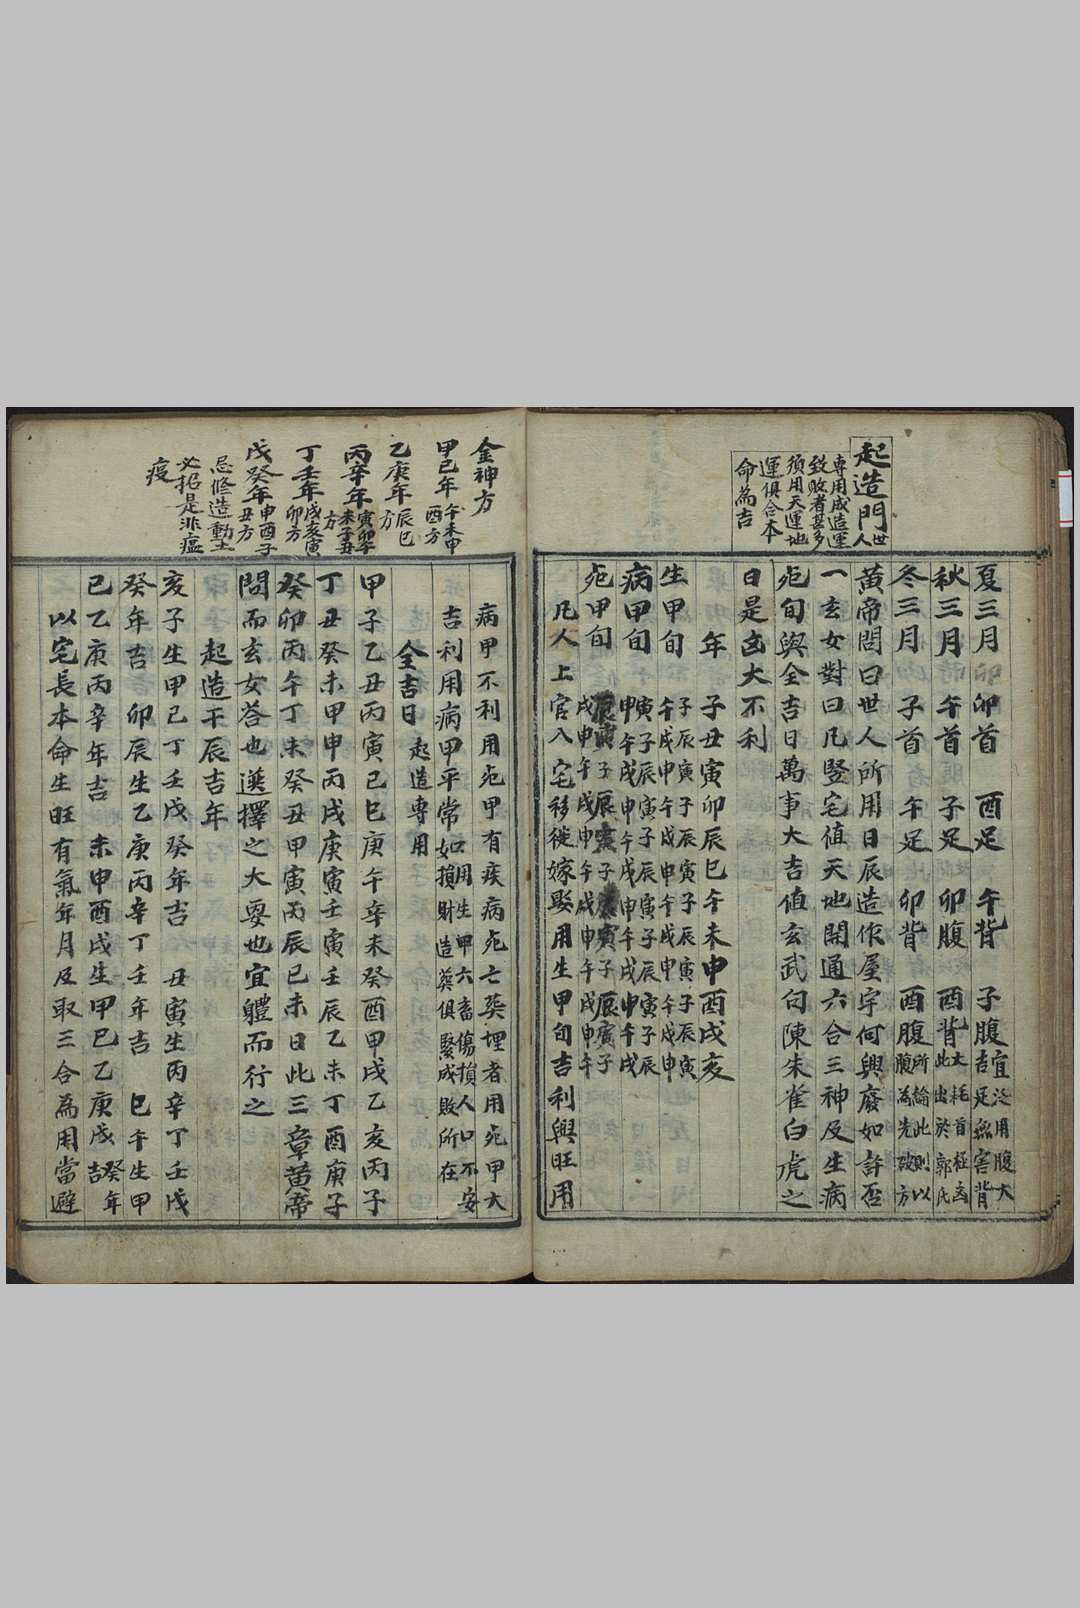 起造門
世人專用成造運
致敗者甚多
須用天運地
運俱合本
命為吉
夏三月 卯首 酉足 午背 子腹 宜泛用腹大吉足無害背
秋三月 午首 子足 卯腹 酉背 大耗首極凶此出於郭氏
冬三月 子首 午足 卯背 酉腹 所論此則以腹為先破方
黃帝問曰世人所用日辰造作屋宇何興廢如許否
一玄女對曰凡豎宅值天地開通六合三神及生病
死旬與全吉日萬事大吉值玄武勾陳朱雀白虎之
日是凶大不利
年 子丑寅卯辰巳午未申酉戌亥
生甲旬 子辰寅子辰寅子辰寅子辰寅
午戌申午戌申午戌申午戌申
病甲旬 寅子辰寅子辰寅子辰寅子辰
申午戌申午戌申午戌申午戌
死甲旬 辰寅子辰寅子辰寅子辰寅子
戌申午戌申午戌申午戌申午
凡人上官入宅移徙嫁娶用生甲旬吉利興旺用
金神方
甲己年 午未申酉方
乙庚年 辰巳方
丙辛年 寅卯午未子丑方
丁壬年 戌亥寅卯方
戊癸年 申酉子丑方
忌修造動土
必招是非瘟
疫
病甲不利用死甲有疾病死亡葬埋者用死甲大
吉利用病甲平常如用生甲六畜傷損人口不安
損財造葬俱緊成敗所在
全吉日 起造專用
甲子乙丑丙寅己巳庚午辛未癸酉甲戌乙亥丙子
丁丑癸未甲申丙戌庚寅壬寅壬辰乙未丁酉庚子
癸卯丙午丁未癸丑甲寅丙辰己未日此三章黃帝
問而玄女答也選擇之大要也宜體而行之
起造干辰吉年
亥子生甲己丁壬戊癸年吉 丑寅生丙辛丁壬戊
癸年吉 卯辰生乙庚丙辛丁壬年吉 巳午生甲
己乙庚丙辛年吉 未申酉戌生甲己乙庚戊癸年吉
以宅長本命生旺有氣年月及取三合為用當避